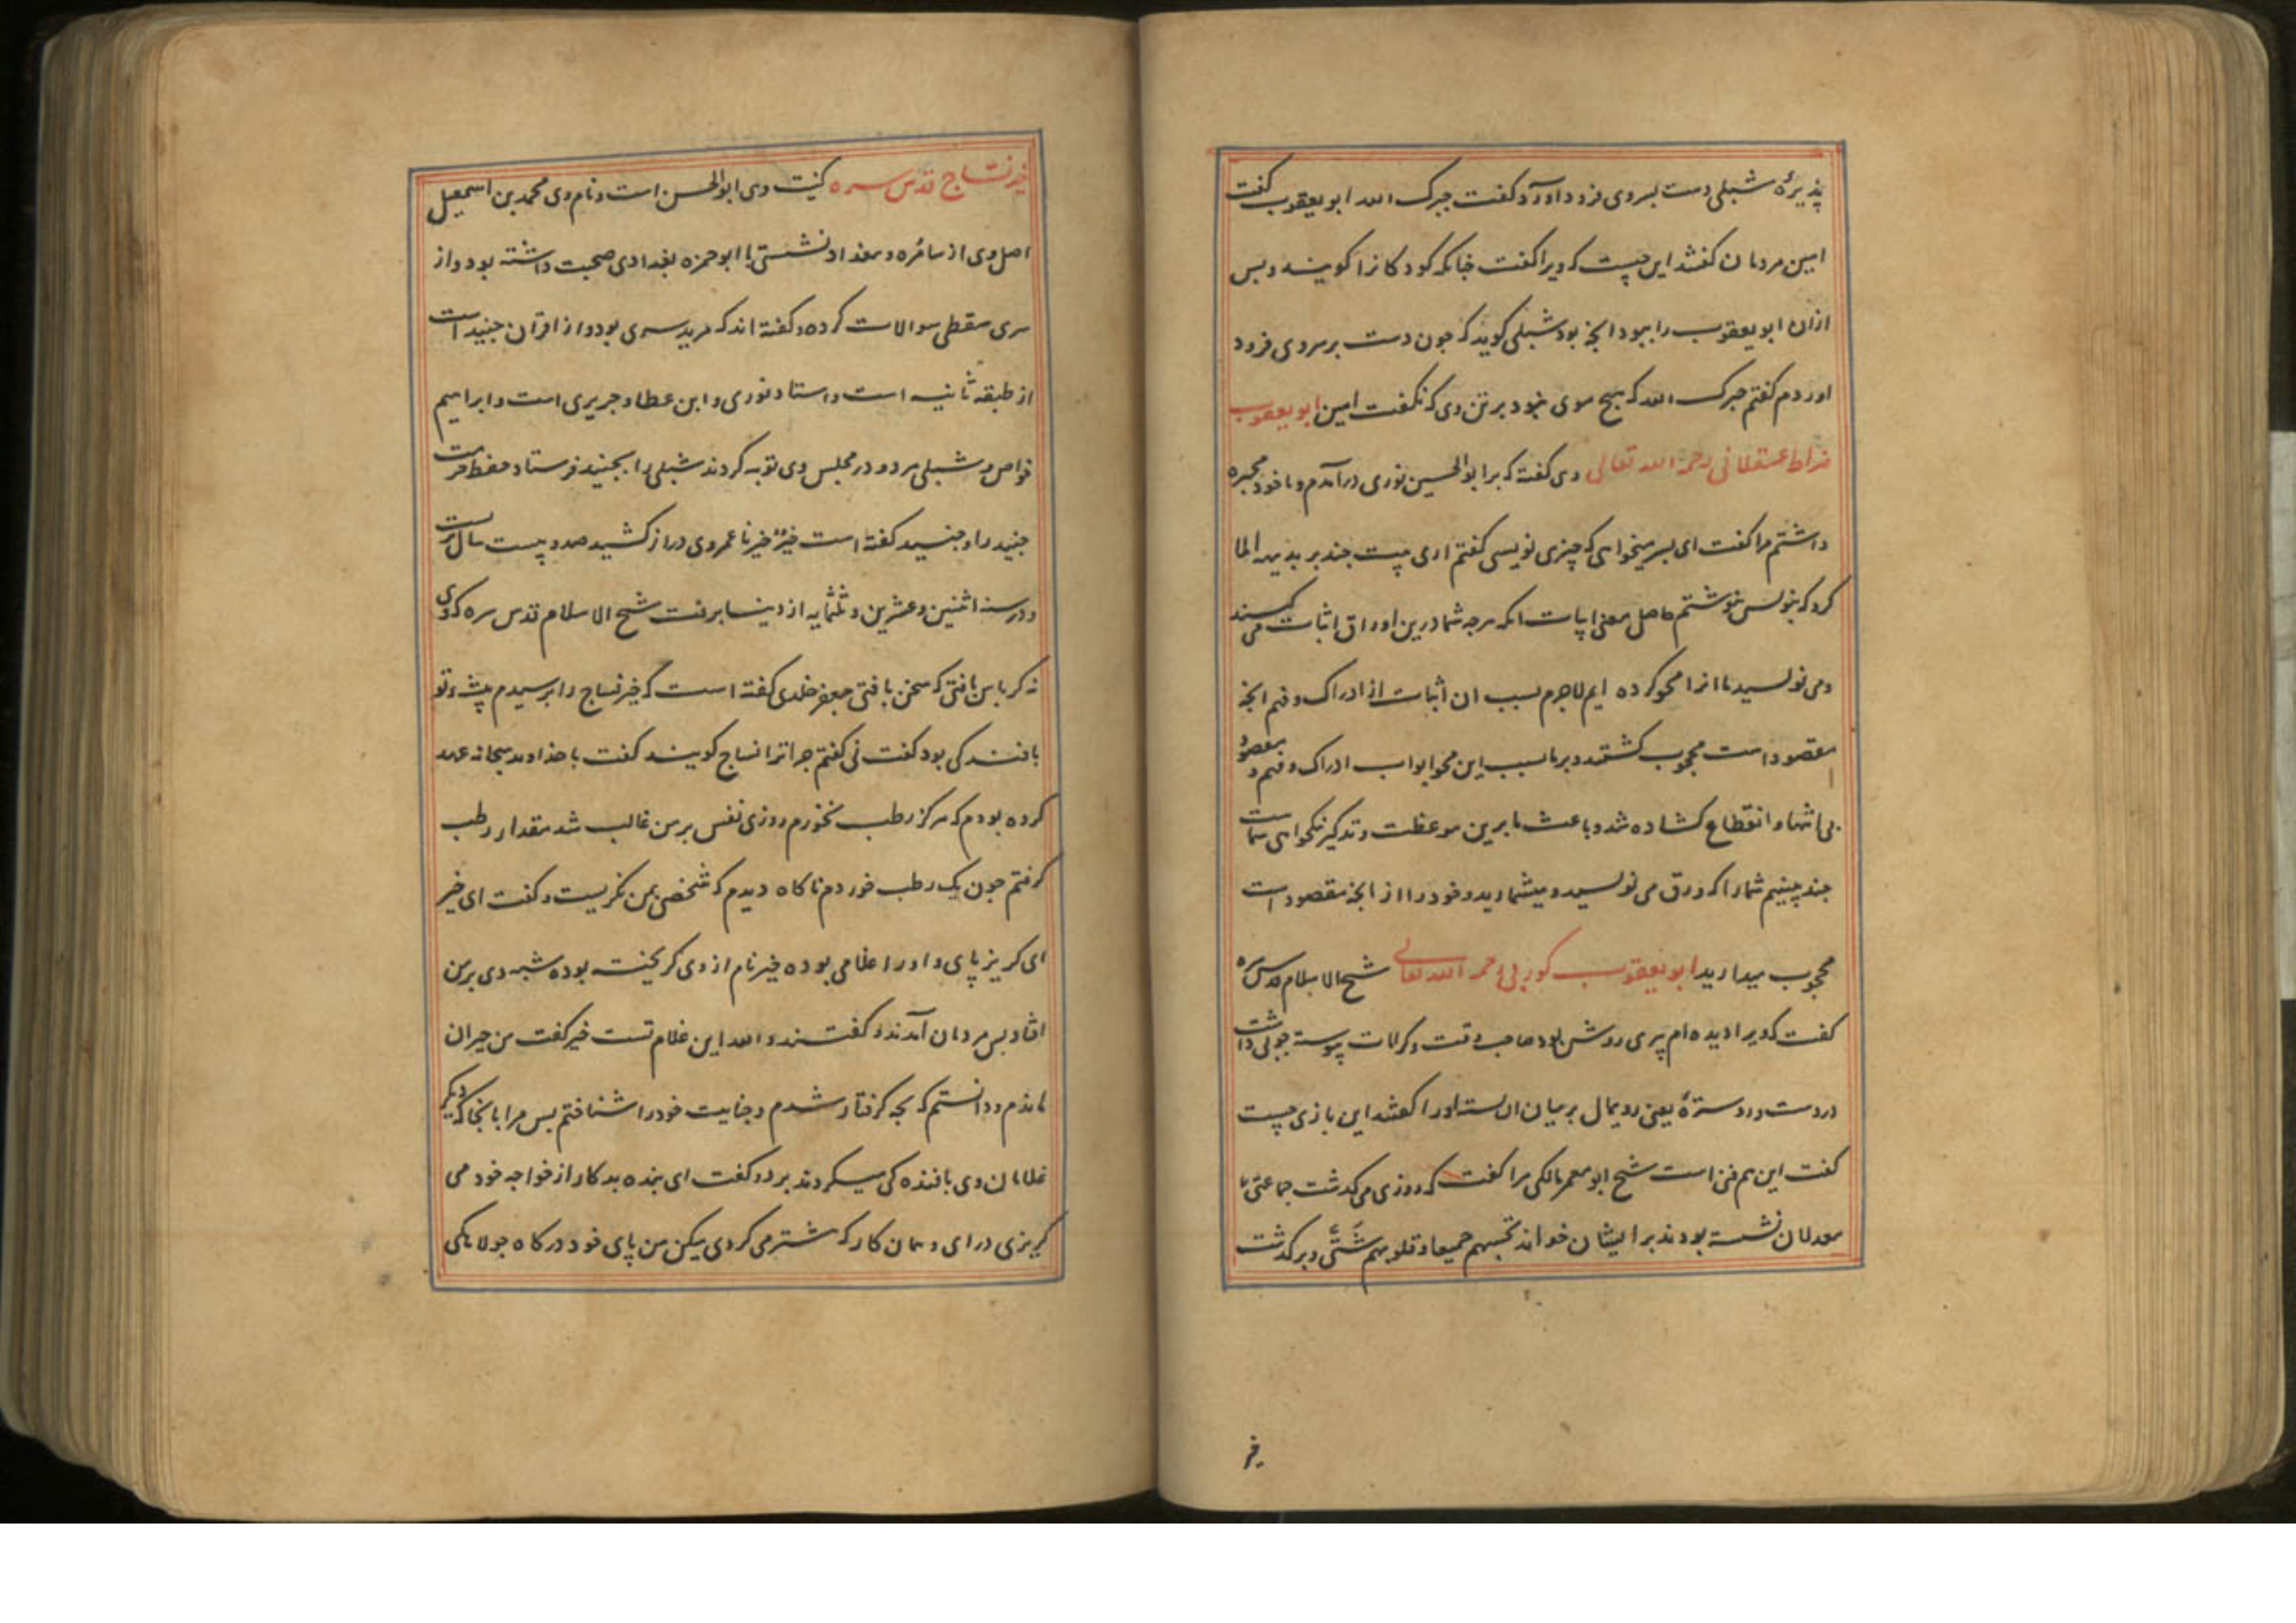 پذیرهٔ شبلی دست بسر وی فرود آورد و گفت جبرک الله ابو یعقوب گفت
امین مردمان گفتند این چیست که ویرا گفت چنانکه کودکانرا گویند و بس
ازان ابو یعقوب را ببود آنچه بود شبلی گوید که چون دست بر سر وی فرود
اوردم گفتم جبرک الله که هیچ موی نبود بر تن وی که نگفت امین ابو یعقوب
خراط عسقلانی رحمه الله تعالی وی گفته که بر ابوالحسین نوری درآمدم و با خود محبره
داشتم مرا گفت ای پسر میخواهی که چیزی نویسی گفتم اری بیت چند بر بدیهه املا
کرد که بنویس بنوشتم حاصل معنی ابیات انکه هر چه شما درین اوراق اثبات می کنید
و می نویسید ما انرا محو کرده ایم لاجرم بسبب ان اثبات از ادراک و فهم انچه
مقصود است محجوب گشتید و بر ما بسبب این محو ابواب ادراک و فهم مقصود
بی انتها و انقطاع گشاده شد و باعث ما برین موعظت و تذکیر نکخواهی شماست
چند بینیم شما را که ورق می نویسید و میشمارید و خود را از انچه مقصود است
محجوب میدارید ابو یعقوب کورتی رحمه الله تعالی شیخ الاسلام قدس سره
گفت که ویرا دیده ام پیری روشن بود صاحب وقت و کرامات پیوسته چوبی داشت
در دست و روستره یعنی رویمال بر میان ان بسته اورا گفتند این بازی چیست
گفت این هم فن است شیخ ابو معمر مالکی مرا گفت که روزی می گذشت جماعتی با
معدلان نشسته بودند بر ایشان خواند تحسبهم جمیعا و قلوبهم شَتّی و برگذشت
خیر
خیر نسّاج قدس سره کنیت وی ابوالحسن است و نام وی محمد بن اسمعیل
اصل وی از سامُرّه و ببغداد نشستی با ابو حمزه بغدادی صحبت داشته بود و از
سری سقطی سوالات کرده و گفته اند که مرید سری بود و از اقران جنید است
از طبقه ثانیه است و استاد نوری و ابن عطا و جریری است و ابراهیم
خواص و شبلی هر دو در مجلس وی توبه کردند شبلی را بجنید فرستاد حفظ حرمت
جنید را و جنید گفته است خیرٌ خیرنا عمر وی دراز کشید صد و بیست سال بزیست
و در سنه اثنین و عشرین و ثلثمایه از دنیا برفت شیخ الاسلام قدس سره که وی
نه کرباس بافتی که سخن بافتی جعفر خلدی گفته است که خیر نساج را پرسیدم پیشهٔ تو
بافندگی بود گفت نی گفتم چرا ترا نساج گویند گفت با خداوند سبحانه عهد
کرده بودم که هرگز رطب نخورم روزی نفس بر من غالب شد مقدار رطب
گرفتم چون یک رطب خوردم ناگاه دیدم که شخصی بمن نگریست و گفت ای خیر
ای گریز پای و او را غلامی بوده خیر نام از وی گریخته بوده شبه وی بر من
افتاد پس مردمان آمدند و گفتند والله این غلام تست خیر گفت من حیران
ماندم و دانستم که بچه گرفتار شدم و جنایت خود را شناختم پس مرا بانجا که دیگر
غلامان وی بافندگی میکردند برد و گفت ای بنده بد کار از خواجه خود می
گریزی درای و همان کار که پیشتر می کردی میکن من پای خود در کاه جولاهگی